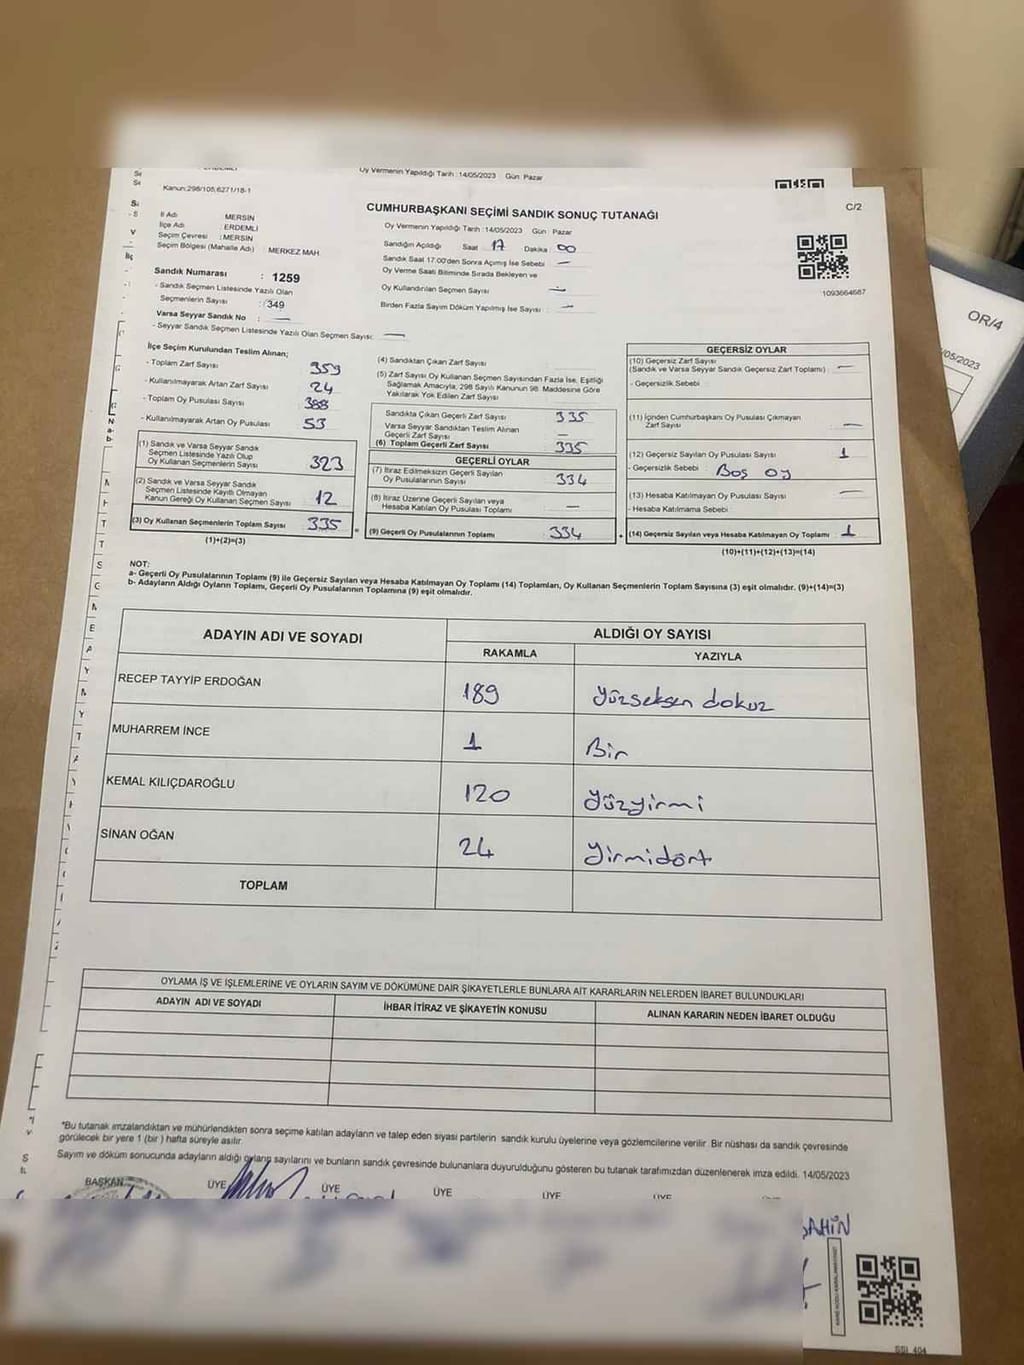 Oy Vermenin Yapıldığı Tarih : 14/05/2023 Gün: Pazar
Kanun:298/105,6271/18-1
C/2
CUMHURBAŞKANI SEÇİMİ SANDIK SONUÇ TUTANAĞI
İl Adı : MERSİN
İlçe Adı : ERDEMLİ
Seçim Çevresi : MERSİN
Seçim Bölgesi (Mahalle Adı) : MERKEZ MAH
Oy Vermenin Yapıldığı Tarih : 14/05/2023 Gün : Pazar
Sandığın Açıldığı Saat 17 Dakika : 00
Sandık Saat 17.00'den Sonra Açılmış İse Sebebi —
Oy Verme Saati Bitiminde Sırada Bekleyen ve
Oy Kullandırılan Seçmen Sayısı : —
Birden Fazla Sayım Döküm Yapılmış İse Sayısı : —
1093664687
Sandık Numarası : 1259
- Sandık Seçmen Listesinde Yazılı Olan
Seçmenlerin Sayısı : 349
Varsa Seyyar Sandık No : —
- Seyyar Sandık Seçmen Listesinde Yazılı Olan Seçmen Sayısı: —
OR/4
/05/2023
İlçe Seçim Kurulundan Teslim Alınan;
- Toplam Zarf Sayısı 359
- Kullanılmayarak Artan Zarf Sayısı 24
- Toplam Oy Pusulası Sayısı 388
- Kullanılmayarak Artan Oy Pusulası 53
(1) Sandık ve Varsa Seyyar Sandık
Seçmen Listesinde Yazılı Olup
Oy Kullanan Seçmenlerin Sayısı 323
(2) Sandık ve Varsa Seyyar Sandık
Seçmen Listesinde Kayıtlı Olmayan
Kanun Gereği Oy Kullanan Seçmen Sayısı 12
(3) Oy Kullanan Seçmenlerin Toplam Sayısı 335
(1)+(2)=(3)
(4) Sandıktan Çıkan Zarf Sayısı
(5) Zarf Sayısı Oy Kullanan Seçmen Sayısından Fazla İse, Eşitliği
Sağlamak Amacıyla, 298 Sayılı Kanunun 98. Maddesine Göre
Yakılarak Yok Edilen Zarf Sayısı
Sandıkta Çıkan Geçerli Zarf Sayısı 335
Varsa Seyyar Sandıktan Teslim Alınan
Geçerli Zarf Sayısı —
(6) Toplam Geçerli Zarf Sayısı 335
GEÇERLİ OYLAR
(7) İtiraz Edilmeksizin Geçerli Sayılan
Oy Pusulalarının Sayısı 334
(8) İtiraz Üzerine Geçerli Sayılan veya
Hesaba Katılan Oy Pusulası Toplamı —
= (9) Geçerli Oy Pusulalarının Toplamı 334
GEÇERSİZ OYLAR
(10) Geçersiz Zarf Sayısı
(Sandık ve Varsa Seyyar Sandık Geçersiz Zarf Toplamı) : —
- Geçersizlik Sebebi :
(11) İçinden Cumhurbaşkanı Oy Pusulası Çıkmayan
Zarf Sayısı —
(12) Geçersiz Sayılan Oy Pusulası Sayısı 1
- Geçersizlik Sebebi : Boş oy
(13) Hesaba Katılmayan Oy Pusulası Sayısı —
- Hesaba Katılmama Sebebi
+ (14) Geçersiz Sayılan veya Hesaba Katılmayan Oy Toplamı 1
(10)+(11)+(12)+(13)=(14)
NOT:
a- Geçerli Oy Pusulalarının Toplamı (9) ile Geçersiz Sayılan veya Hesaba Katılmayan Oy Toplamı (14) Toplamları, Oy Kullanan Seçmenlerin Toplam Sayısına (3) eşit olmalıdır. (9)+(14)=(3)
b- Adayların Aldığı Oyların Toplamı, Geçerli Oy Pusulalarının Toplamına (9) eşit olmalıdır.
ADAYIN ADI VE SOYADI
ALDIĞI OY SAYISI
RAKAMLA YAZIYLA
RECEP TAYYİP ERDOĞAN 189 Yüzseksen dokuz
MUHARREM İNCE 1 Bir
KEMAL KILIÇDAROĞLU 120 Yüzyirmi
SİNAN OĞAN 24 Yirmidört
TOPLAM
OYLAMA İŞ VE İŞLEMLERİNE VE OYLARIN SAYIM VE DÖKÜMÜNE DAİR ŞİKAYETLERLE BUNLARA AİT KARARLARIN NELERDEN İBARET BULUNDUKLARI
ADAYIN ADI VE SOYADI İHBAR İTİRAZ VE ŞİKAYETİN KONUSU ALINAN KARARIN NEDEN İBARET OLDUĞU
*Bu tutanak imzalandıktan ve mühürlendikten sonra seçime katılan adayların ve talep eden siyasi partilerin sandık kurulu üyelerine veya gözlemcilerine verilir. Bir nüshası da sandık çevresinde
görülecek bir yere 1 (bir) hafta süreyle asılır.
Sayım ve döküm sonucunda adayların aldığı oyların sayılarını ve bunların sandık çevresinde bulunanlara duyurulduğunu gösteren bu tutanak tarafımızdan düzenlenerek imza edildi. 14/05/2023
BAŞKAN ÜYE ÜYE ÜYE ÜYE ÜYE